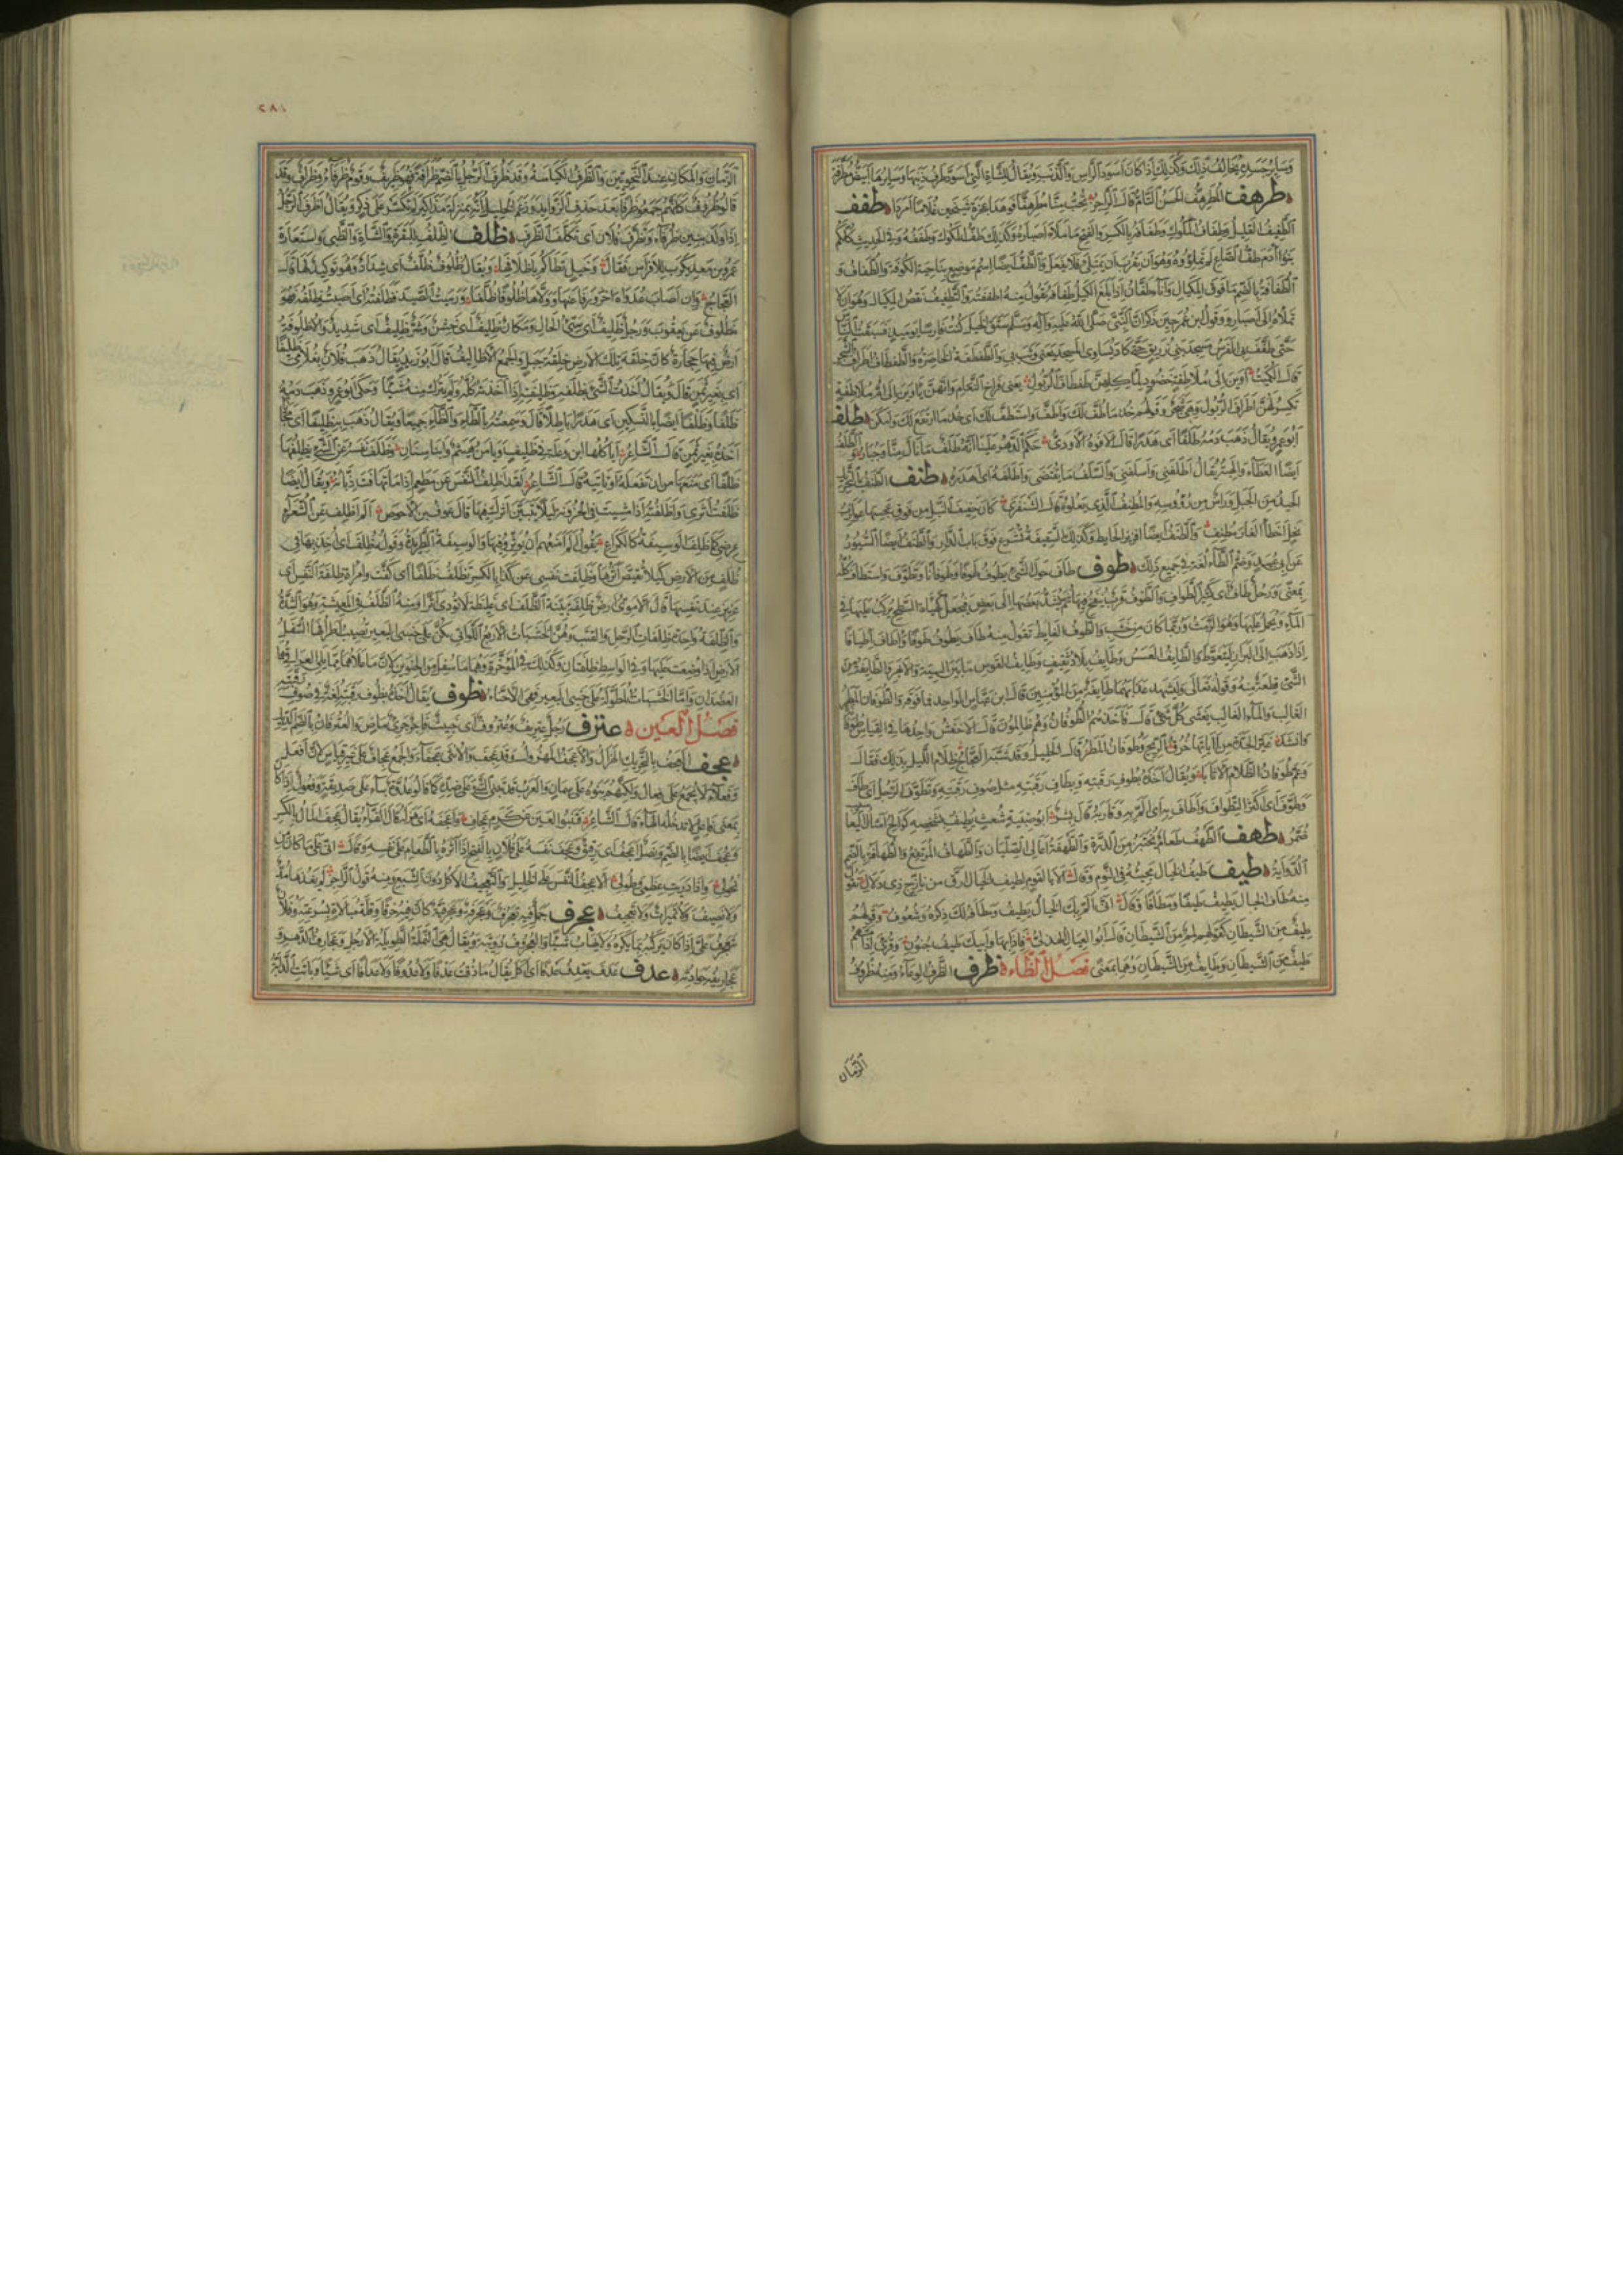 وساير جسده يخالف ذلك وكذلك اذا كان اسود الراس والذنب ويقال للشاة التي اسود طرف ذنبها وسايرها ابيض مطرفة
طرهف المطرهف الحسن التام قال الراجز تحب منا مطرهفا فوهدا عجزة شيخين غلاما امردا طفف
الطفيف القليل وطفاف المكوك وطفافه بالكسر والفتح ما ملأ اصباره وكذلك طف المكوك وطففه وفي الحديث كلكم
بنو آدم طف الصاع لم تملؤوه وهو ان يقرب ان يمتلئ فلا يفعل والطف ايضا اسم موضع بناحية الكوفة والطفاف و
الطفافة بالضم ما فوق المكيال واناء طفان اذا بلغ الكيل طفافه تقول منه اطففته والتطفيف نقص المكيال وهو ان لا
تملأه الى اصباره وقول ابن عمر حين ذكر ان النبي صلى الله عليه وآله وسلم سبق الخيل كنت فارسا يوميذ فسبقت الناس
حتى طفف بي الفرس مسجد بني زريق حتى كاد يساوي المسجد يعني وثب بي والطفطفة الخاصرة والطفطاف اطراف الشجر
قال الكميت أوين الى ملاطفة خضود لماكلهن طفطاف الربول يعني فراخ النعام وانهن ياوين الى ام ملاطفة
تكسر لهن اطراف الربول وهي شجر وقولهم خذ ما طف لك واطف واستطف لك اي خذ ما ارتفع لك وامكن طلف
ابو عمرو يقال ذهب دمه طلفا اي هدرا قال الافوه الاودي حكم الدهر علينا انه طلف ما نال منا وجبار والطلف
ايضا العطاء والهبة يقال اطلفني واسلفني والسلف ما يقتضى واطلفه اي اهدره طنف الطنف بالتحريك
الحيد من الجبل وراس من رؤوسه والمطنف الذي يعلوه قال الشنفرى كان حفيف النبل من فوق عجسها عوازب
نحل اخطأ الغار مطنف والطنف ايضا افريز الحايط وكذلك السقيفة تشرع فوق باب الدار والطنف ايضا السيور
عن ابي عبيد وضم الطاء لغة في جميع ذلك طوف طاف حول الشيء يطوف طوفا وطوفانا وتطوف واستطاف كله
بمعنى ورجل طاف اي كثير الطواف والطوف قرب ينفخ فيها ثم يشد بعضها الى بعض فتجعل كهيئة السطح يركب عليها في
الماء ويحمل عليها وهو الرمث وربما كان من خشب والطوف الغايط تقول منه طاف يطوف طوفا واطاف اطيافا
اذا ذهب الى البراز ليتغوط والطايف العسس وطايف بلاد ثقيف وطايف القوس ما بين السية والابهر والطايفة من
الشيء قطعة منه وقوله تعالى وليشهد عذابهما طايفة من المؤمنين قال ابن عباس الواحد فما فوقه والطوفان المطر
الغالب والماء الغالب يغشى كل شيء قال فاخذهم الطوفان وهم ظالمون قال الاخفش واحدها في القياس طوفانة
وانشد غير الجدة من آياتها خرق الريح وطوفان المطر قال الخليل وقد شبه العجاج ظلام الليل بذلك فقال
وعم طوفان الظلام الاثابا ويقال اخذه بطوف رقبته وبطاف رقبته مثل صوف رقبته وتطوف الرجل اي طاف
وطوف اي اكثر الطواف واطاف به اي الم به وقاربه قال بشر ابو صبية شعث يطيف بشخصه كوالح امثال اليعاسيب
ضمر طهف الطهف طعام يختبز من الذرة والطهفة اعالي الصليان والطهاف المرتفع والطهافة بالضم
الذؤابة طيف طيف الخيال مجيئه في النوم وقال الا يا لقوم لطيف الخيال ارق من نازح ذي دلال تقول
منه طاف الخيال يطيف طيفا ومطافا وقال انى الم بك الخيال يطيف ومطافه لك ذكرة وشعوف وقولهم
طيف من الشيطان كقولهم لمم من الشيطان قال ابو العيال الهذلي فاذا بها وابيك طيف جنون وقرئ اذا مسهم
طيف من الشيطان وطايف من الشيطان وهما بمعنى فصل الظاء ظرف الظرف الوعاء ومنه ظروف
الزمان
٢٨١
الزمان والمكان عند النحويين والظرف الكياسة وقد ظرف الرجل بالضم ظرافة فهو ظريف وقوم ظرفاء وظراف وقد
قالوا ظروف كانهم جمعوا ظرفا بعد حذف الزوايد وزعم الخليل انه بمنزلة مذاكير لم تكسر على ذكر ويقال اظرف الرجل
اذا ولد بنين ظرفاء وتظرف فلان اي تكلف الظرف ظلف الظلف للبقرة والشاة والظبي واستعاره
عمرو بن معديكرب للافراس فقال وخيل تطاكم باظلافها ويقال ظلوف ظلف اي شداد وهو توكيد لها قال
العجاج وان اصاب عدواء احرورفا عنها وولاها ظلوفا ظلفا ورميت الصيد فظلفته اي اصبت ظلفه فهو
مظلوف عن يعقوب ورجل ظليف اي سيئ الحال ومكان ظليف اي خشن وشر ظليف اي شديد والاظلوفة
ارض فيها حجارة كان خلقة تلك الارض خلقة جبل والجمع الاظاليف قال ابو زيد يقال ذهب فلان بغلامي ظليفا
اي بغير ثمن قال ويقال اخذت الشيء بظلفه وظليفته اذا اخذته كله ولم يترك منه شيئا وحكى ابو عمرو ذهب دمه
ظلفا وظلفا ايضا بالتسكين اي هدرا باطلا قال وسمعته بالطاء والظاء جميعا ويقال ذهب به ظليفا اي مجانا
اخذه بغير ثمن قال الشاعر اياكلها ابن وعلة في ظليف ويامن هيثم وابنا سنان وظلف نفسه عن الشيء يظلفها
ظلفا اي منعها من ان تفعله او تاتيه قال الشاعر لقد اظلف النفس عن مطعم اذا ما تهافت ذبانه ويقال ايضا
ظلفت اثري واظلفته اذا مشيت في الحزونة ليلا يتبين اثرك فيها قال عوف بن الاحوص الم اظلف عن الشعراء
عرضي كما ظلف الوسيقة بالكراع يقول الم امنعهم ان يؤثروا فيها والوسيقة الطريدة وقوله ظلف اي اخذ بها في
ظلف من الارض كيلا تقتص آثرها وظلفت نفسي عن كذا بالكسر تظلف ظلفا اي كفت وامراة ظلفة النفس اي
عزيزة عند نفسها قال الاموي ارض ظلفة بينة الظلف اي غليظة لا تؤدي اثرا ومنه الظلف في المعيشة وهو الشدة
والظلفة واحدة ظلفات الرحل والقتب وهن الخشبات الاربع اللواتي يكن على جنبي البعير تصيب اطرافها السفلى
الارض اذا وضعت عليها وفي الواسط ظلفتان وكذلك في المؤخرة وهما ما سفل من الحنوين لان ما علاهما مما يلي العراقي هما
العضدان واما الخشبات المطولة على جنبي البعير فهي الاحناء ظوف يقال اخذه بظوف رقبته لغة في صوف رقبته
فصل العين عترف رجل عتريف وعتروف اي خبيث فاجر جريء ماض والعترفان بالضم الديك
عجف العجف بالتحريك الهزال والاعجف المهزول وقد عجف والانثى عجفاء والجمع عجاف على غير قياس لان افعل
وفعلاء لا يجمع على فعال ولكنهم بنوه على سمان والعرب قد تبني الشيء على ضده كما قالوا عدوة بناء على صديقة وفعول اذا كان
بمعنى فاعل لا تدخله الهاء قال الشاعر واعجفه اي هزله قال الفراء يقال عجف المال بالكسر
وعجف ايضا بالضم ونصل اعجف اي رقيق وعجف نفسه على فلان بالفتح اذا آثره بالطعام على نفسه وقال اني على ما كان من
نحولي وازدرت عظمي وطولي لاعجف النفس على الخليل والتعجيف الاكل دون الشبع ومنه قول الراجز لم يغذها مد
ولا نصيف ولا تميرات ولا تعجيف عجرف جمل فيه تعجرف وعجرفة وعجرفية كان فيه خرقا وقلة مبالاة لسرعته وفلان
يتعجرف علي اذا كان يركبه بما يكره ولا يهاب شيئا والعجروف دويبة ويقال هي النملة الطويلة الارجل وعجاريف الدهر و
عجارفه حوادثه عدف عدف يعدف عدفا اي اكل يقال ما ذقت عدفا ولا عدوفا ولا عدافا اي شيئا وباتت الدابة